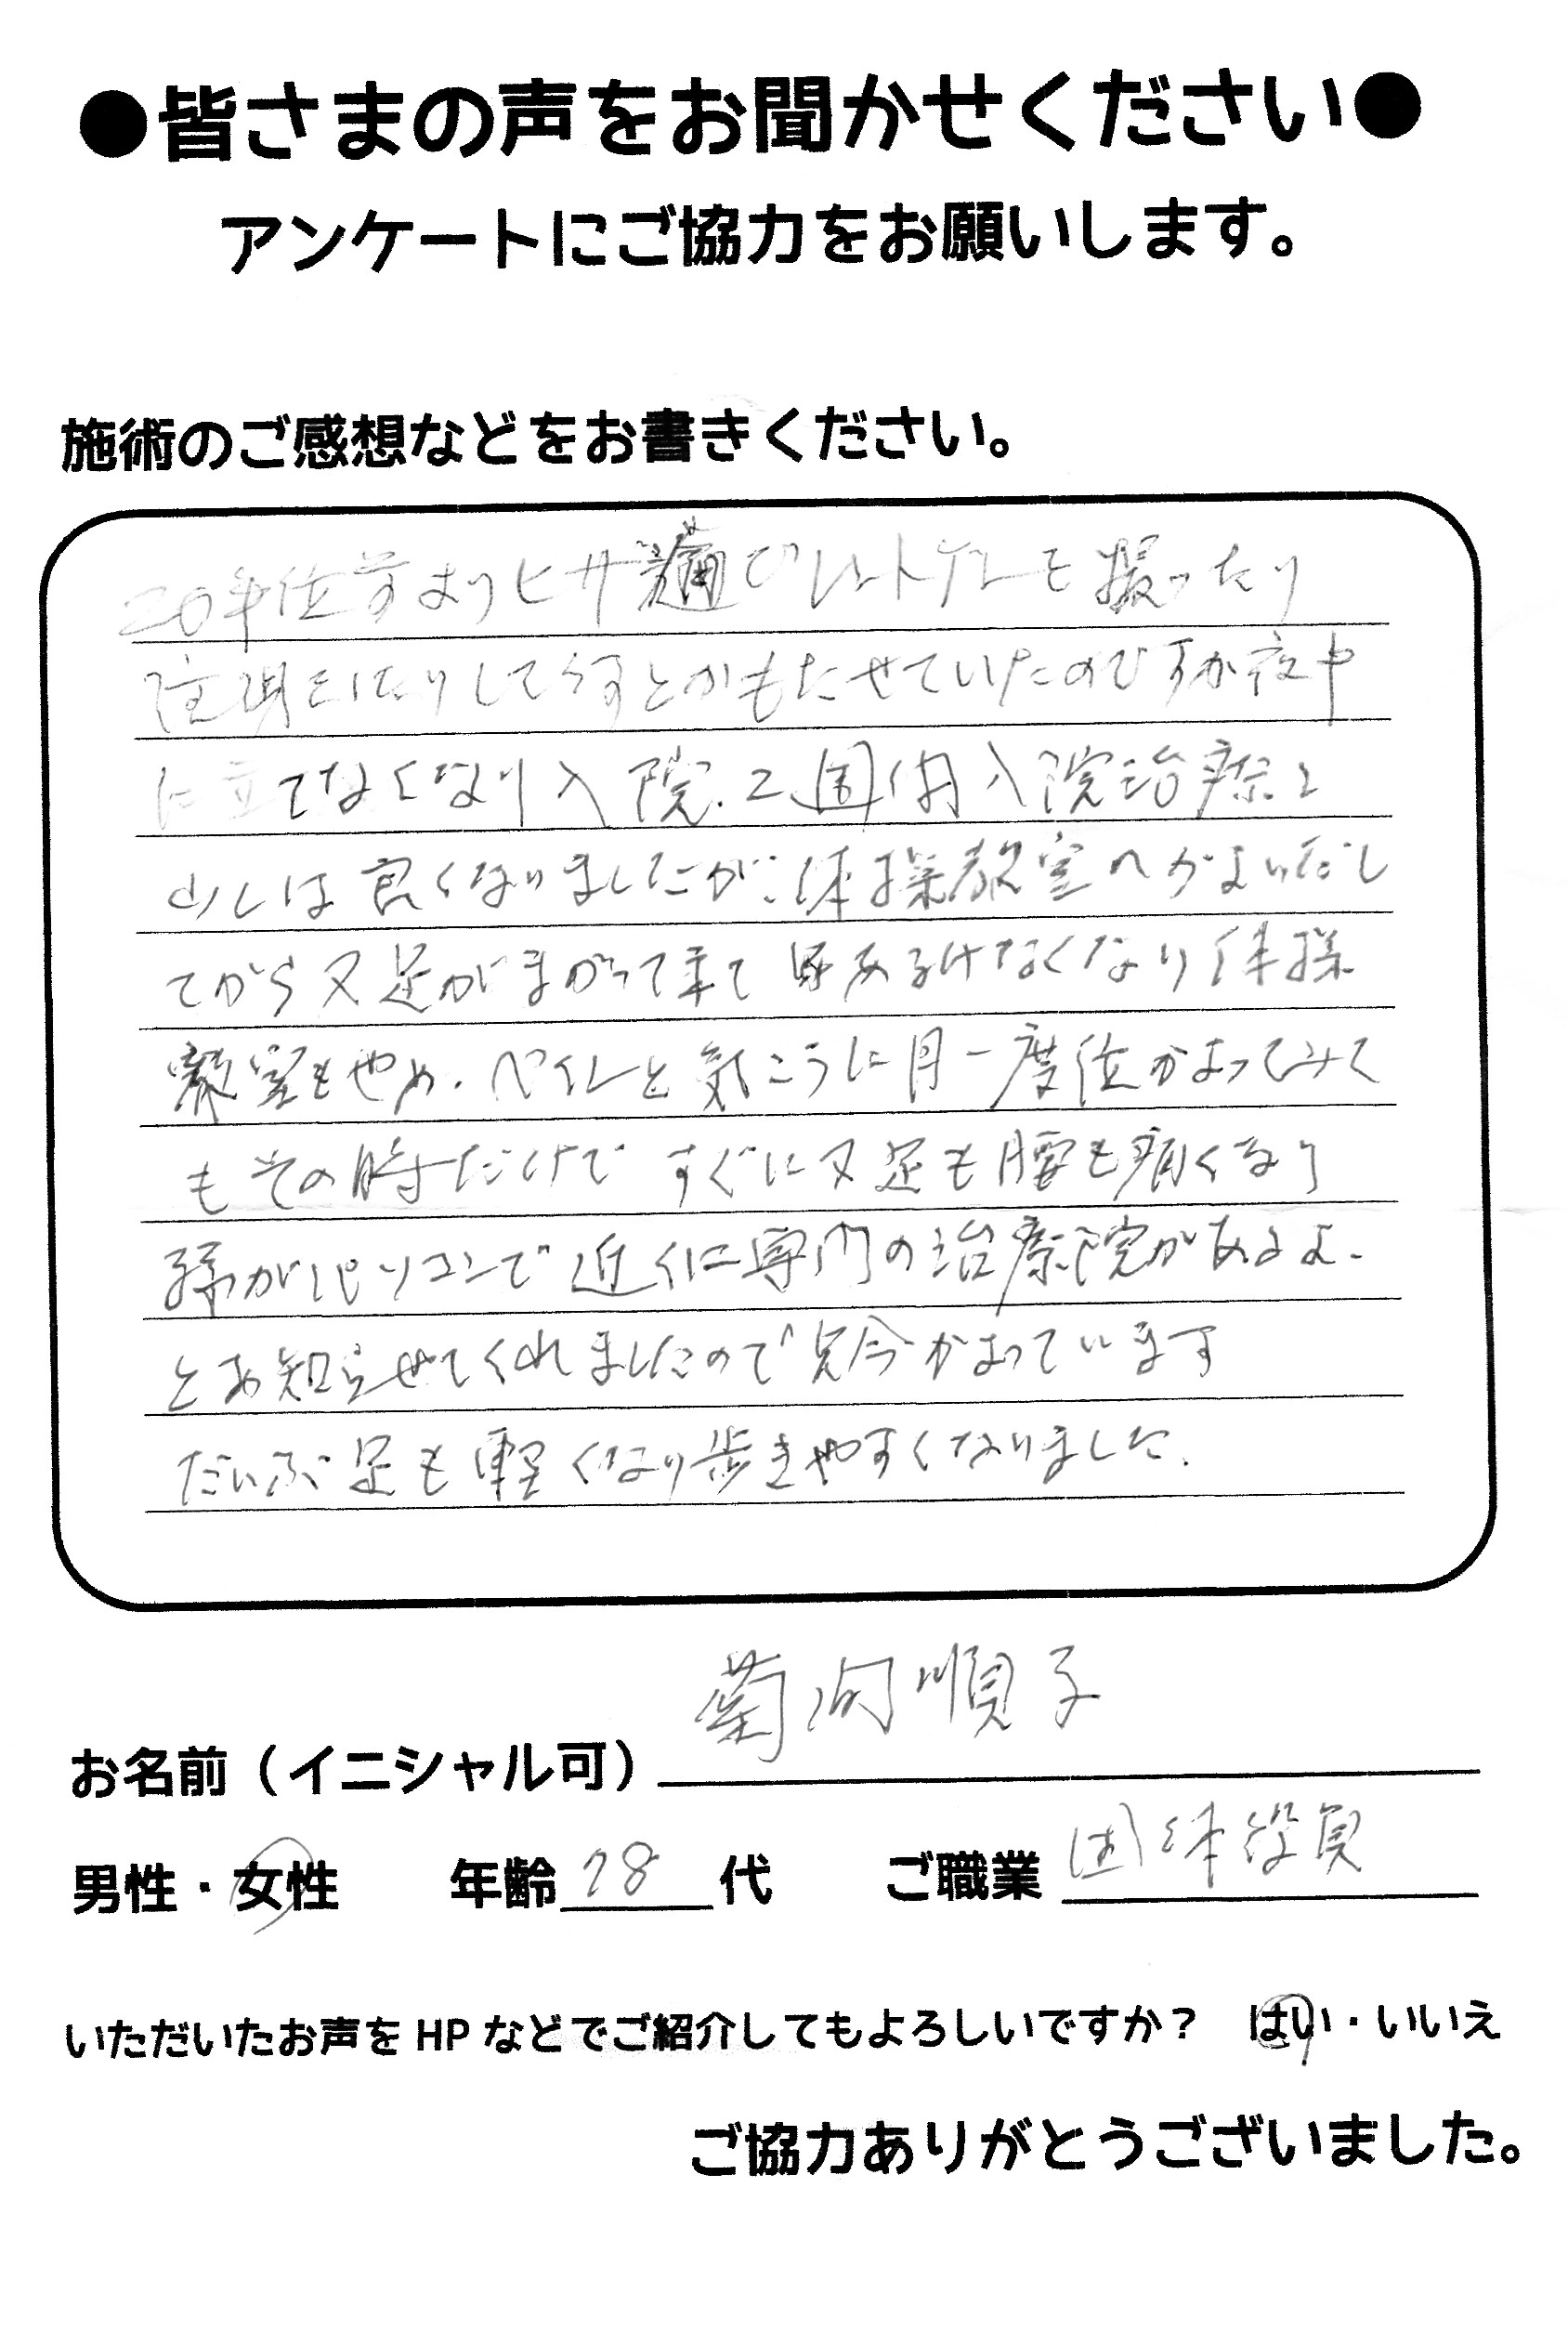 ●皆さまの声をお聞かせください●
アンケートにご協力をお願いします。
施術のご感想などをお書きください。
20年位前よりヒザ痛でレントゲンを撮ったり
注射をしたりして なんとかもたせていたのですが夜中
に立てなくなり入院.2週間入院治療し
少しは良くなりましたが、体操教室へかよいだし
てから又足がまがって来て あるけなくなり体操
教室もやめ.ペインと気こうに月一度位かよってみて
もその時だけで すぐに又足も腰も痛くなり
孫がパソコンで近くに専門の治療院があるよ.
とお知らせてくれましたので只今かよっています
だいぶ足も軽くなり歩きやすくなりました.
菊 順子
お名前（イニシャル可）
男性・女性 年齢 78 代 ご職業 団体役員
いただいたお声をHPなどでご紹介してもよろしいですか? はい・いいえ
ご協力ありがとうございました。